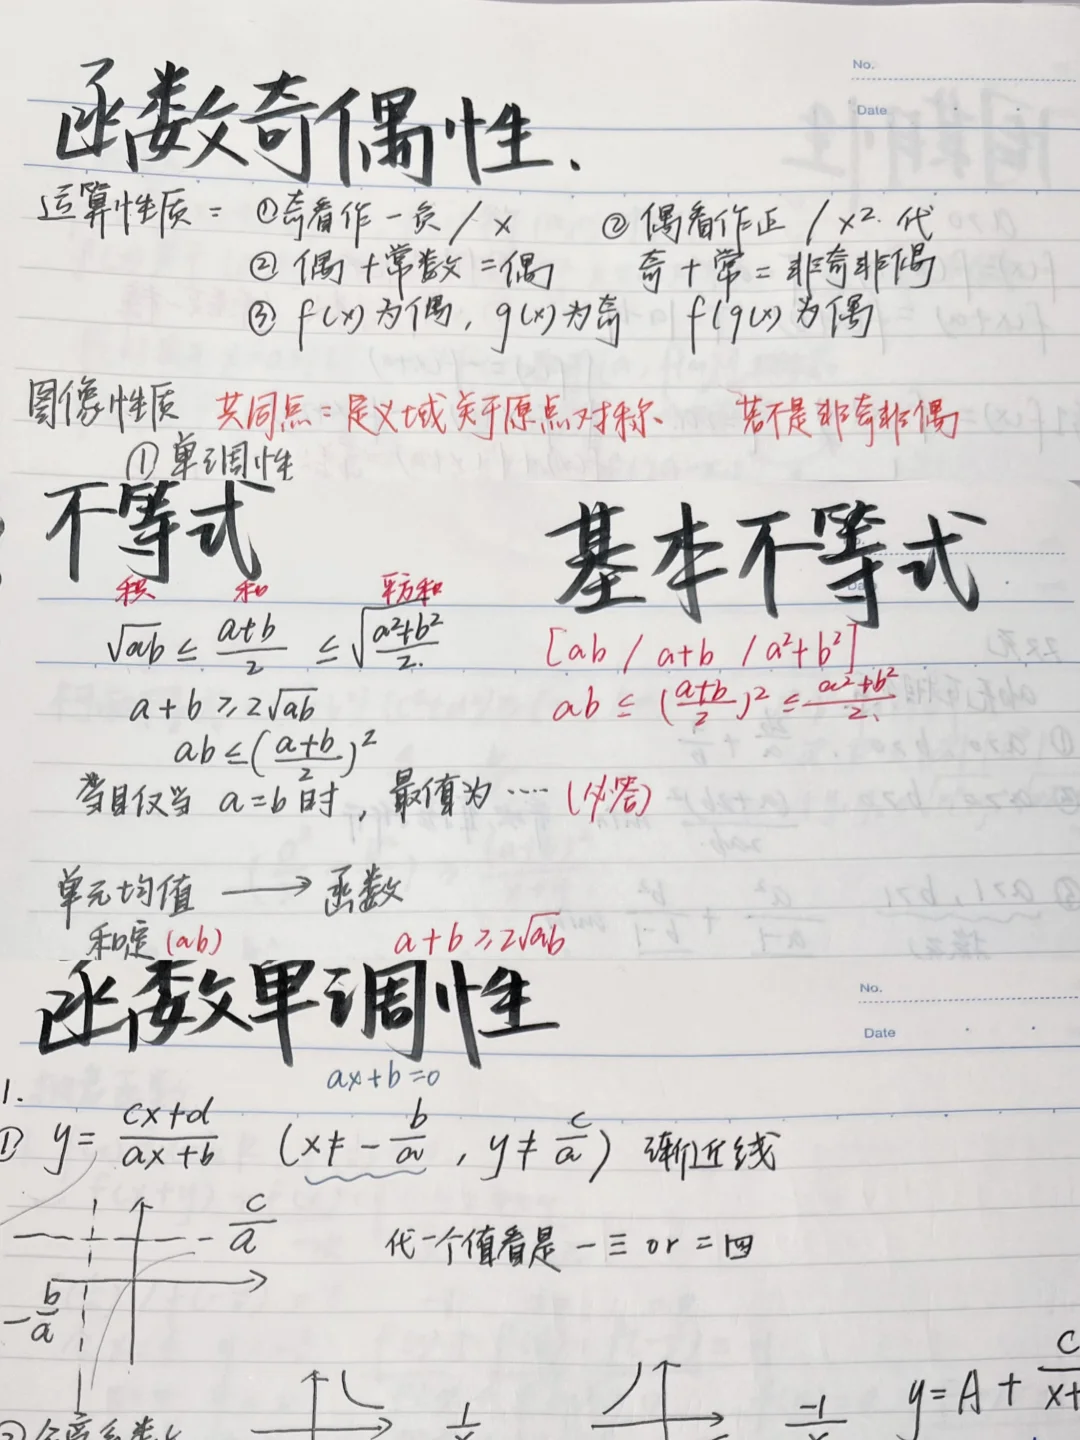 No.
Date
函数奇偶性.
运算性质= ①奇看作一负/x ②偶看作正/x². 代
② 偶+常数=偶 奇+常=非奇非偶
③ f(x)为偶, g(x)为奇 f(g(x)为偶
图像性质 共同点=定义域关于原点对称、 若不是非奇非偶
①单调性
不等式
积 和 平方和
√ab ≤ (a+b)/2 ≤ √((a²+b²)/2.
a+b ≥ 2√ab
ab ≤ ((a+b)/2)²
当且仅当 a=b时, 最值为 ···· (必答)
基本不等式
[ab / a+b / a²+b²]
ab ≤ ((a+b)/2)² ≤ (a²+b²)/2.
单元均值 → 函数
和定(ab) a+b ≥ 2√ab
函数单调性
No.
Date
ax+b=0
1.
① y= (cx+d)/(ax+b) (x≠-b/a, y≠c/a) 渐近线
c/a
代一个值看是一三 or 二四
-b/a
1/x
-1/x
y=A+ c/x+